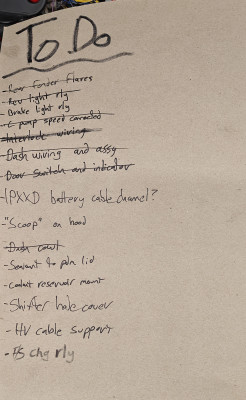 To Do
- Rear fender flares
- Rev light rly
- Brake light rly
- C pump speed corrected
- Interlock wiring
- Dash wiring and assy
- Door switch and indicator
- IPXXD battery cable channel?
- "Scoop" on hood
- Dash cowl
- Sealant to pdm lid
- Coolant reservoir mount
- Shifter hole cover
- HV cable support
- F/S chg rly